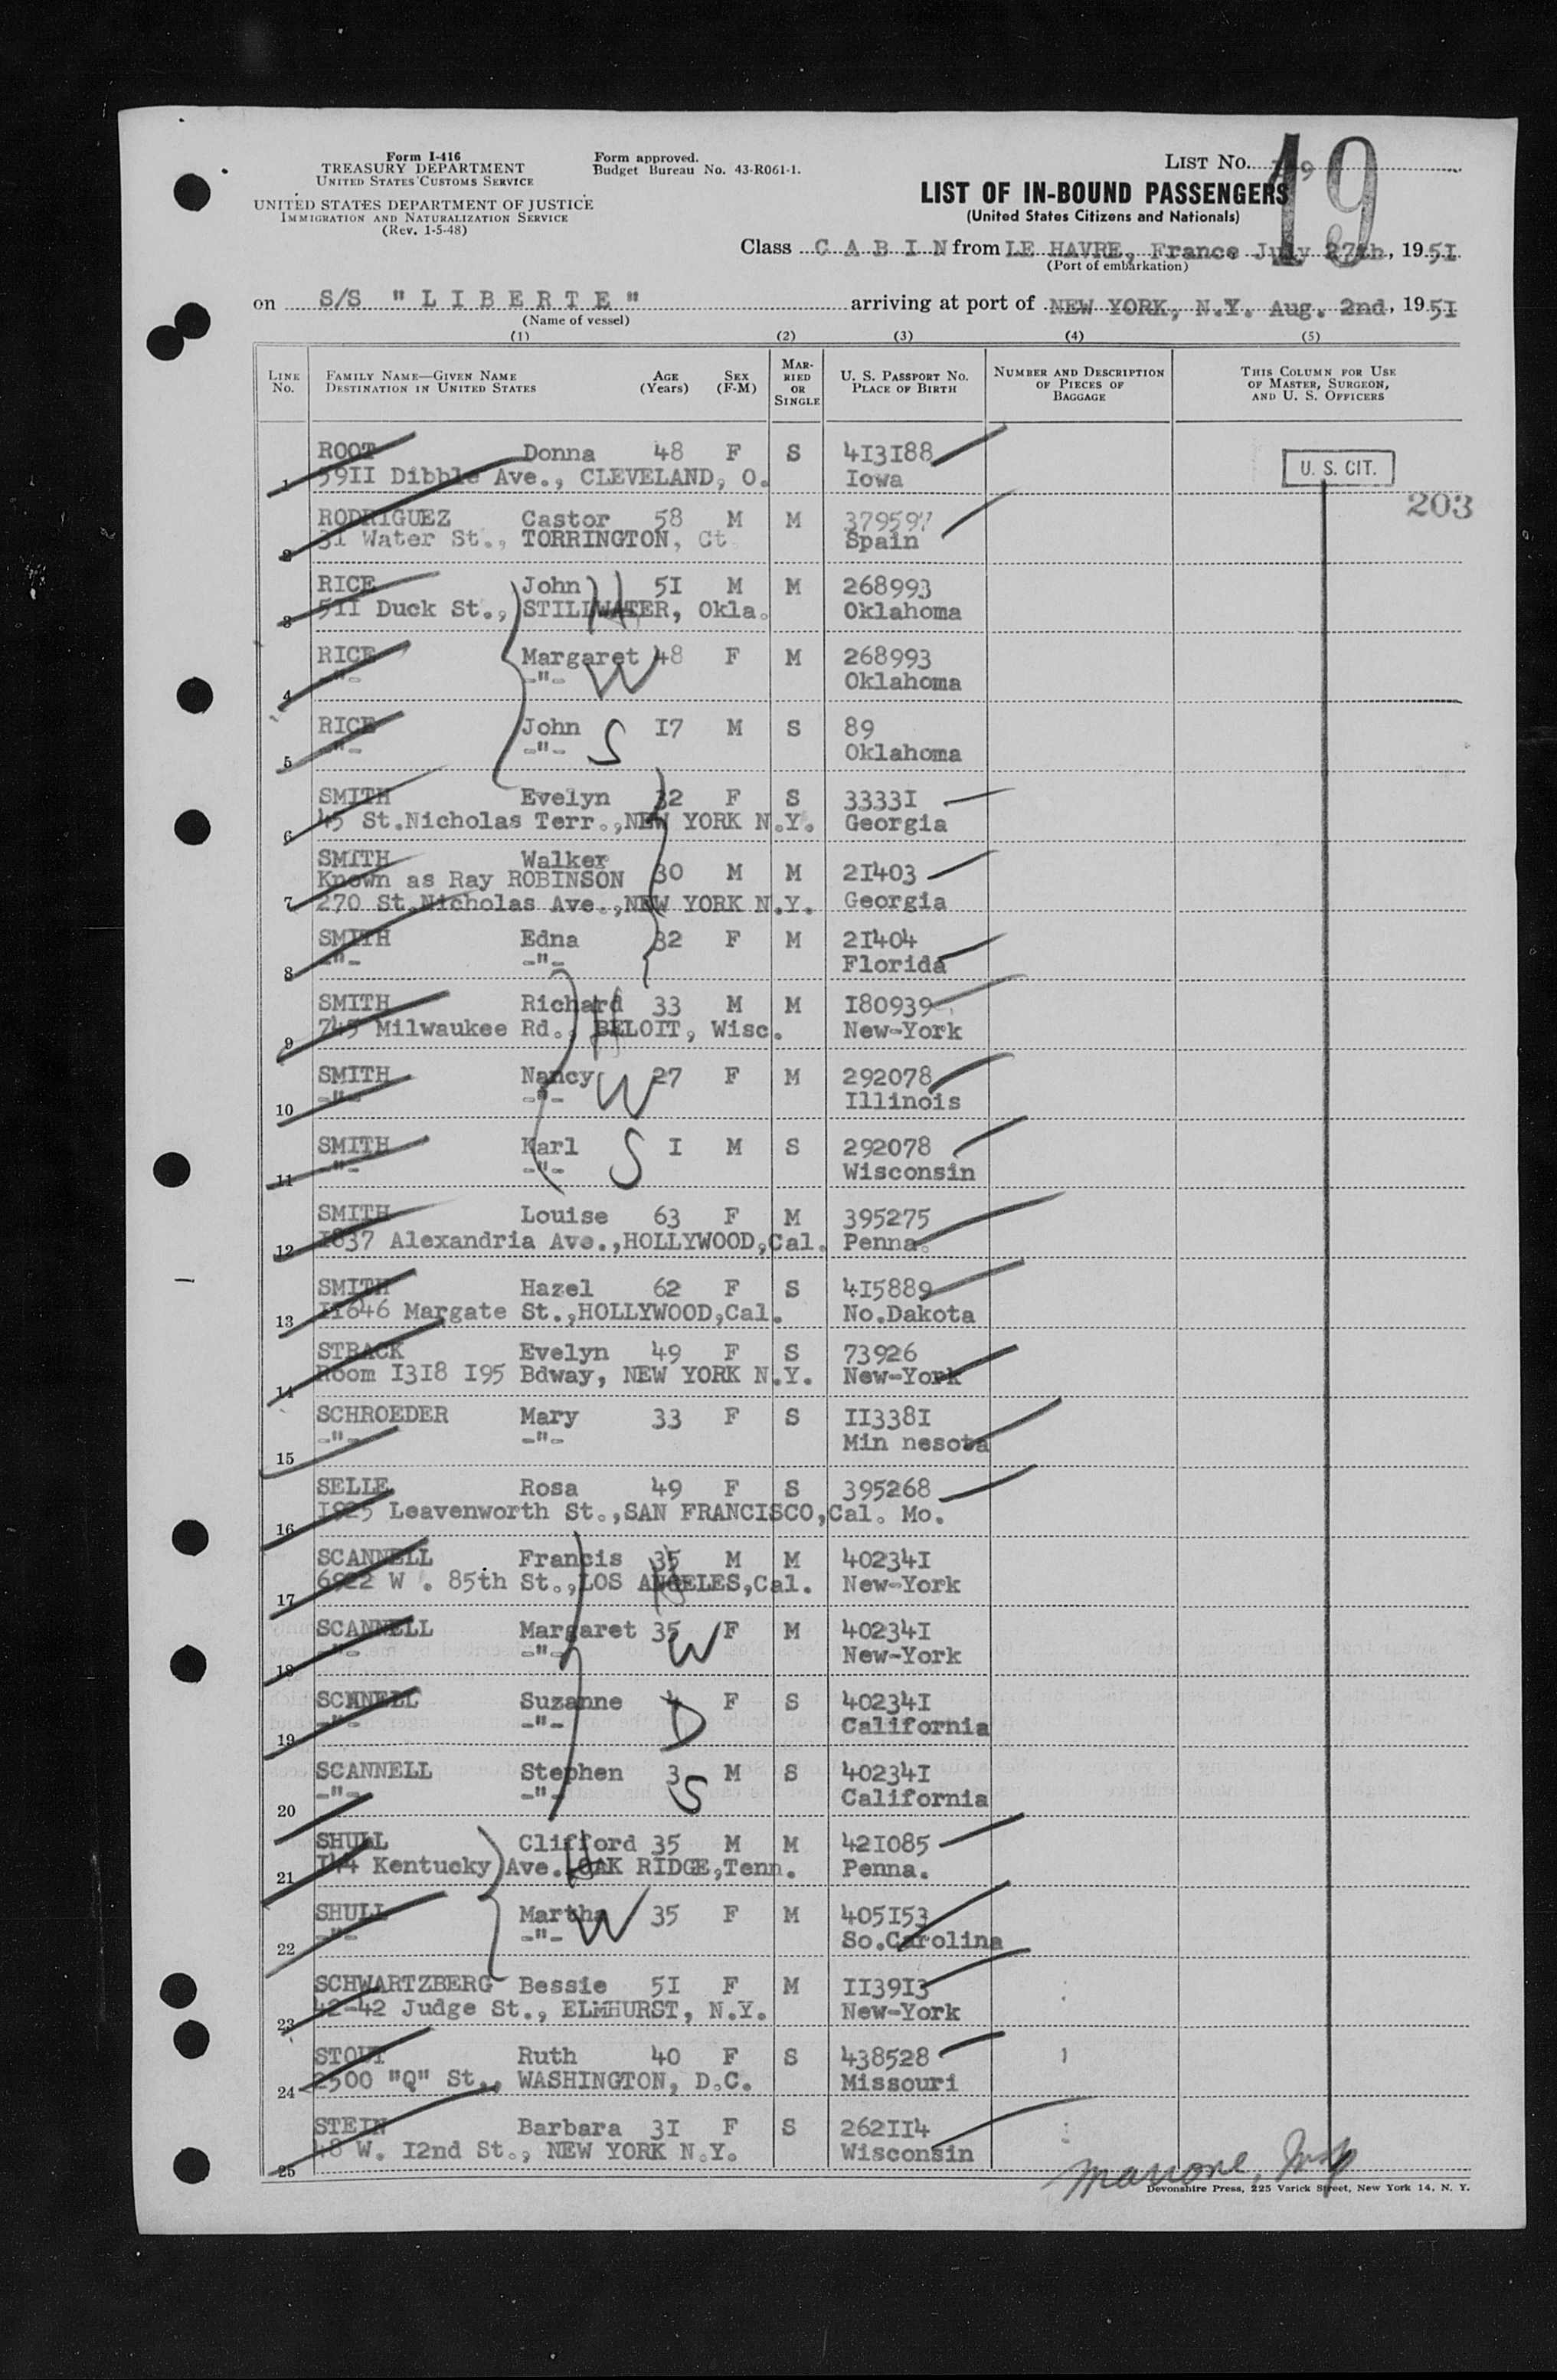 Form I-416
TREASURY DEPARTMENT
UNITED STATES CUSTOMS SERVICE
UNITED STATES DEPARTMENT OF JUSTICE
IMMIGRATION AND NATURALIZATION SERVICE
(Rev. 1-5-48)
Form approved.
Budget Bureau No. 43-R061-1.
LIST NO. 19
LIST OF IN-BOUND PASSENGERS
(United States Citizens and Nationals)
Class C A B I N from LE HAVRE, France July 27th, 1951
(Port of embarkation)
on S/S "LIBERTE" arriving at port of NEW YORK, N.Y. Aug. 2nd, 1951
(Name of vessel)
(1) (2) (3) (4) (5)
LINE NO. FAMILY NAME—GIVEN NAME DESTINATION IN UNITED STATES AGE (Years) SEX (F-M) MARRIED OR SINGLE U. S. PASSPORT NO. PLACE OF BIRTH NUMBER AND DESCRIPTION OF PIECES OF BAGGAGE THIS COLUMN FOR USE OF MASTER, SURGEON, AND U. S. OFFICERS
ROOT Donna 48 F S 413188
1 5911 Dibble Ave., CLEVELAND, O. Iowa
U. S. CIT.
203
RODRIGUEZ Castor 58 M M 379597
2 31 Water St., TORRINGTON, Ct Spain
RICE John H 51 M M 268993
3 511 Duck St., STILLWATER, Okla. Oklahoma
RICE Margaret 48 F M 268993
4 -"- -"- W Oklahoma
RICE John S 17 M S 89
5 -"- -"- Oklahoma
SMITH Evelyn 32 F S 33331
6 45 St.Nicholas Terr.,NEW YORK N.Y. Georgia
SMITH Walker
Known as Ray ROBINSON 30 M M 21403
7 270 St.Nicholas Ave.,NEW YORK N.Y. Georgia
SMITH Edna 32 F M 21404
8 -"- -"- Florida
SMITH Richard H 33 M M 180939
9 745 Milwaukee Rd., BELOIT, Wisc. New-York
SMITH Nancy W 27 F M 292078
10 -"- -"- Illinois
SMITH Karl S 1 M S 292078
11 -"- -"- Wisconsin
SMITH Louise 63 F M 395275
12 1837 Alexandria Ave.,HOLLYWOOD,Cal. Penna.
SMITH Hazel 62 F S 415889
13 11646 Margate St.,HOLLYWOOD,Cal. No.Dakota
STRACK Evelyn 49 F S 73926
14 Room 1318 195 Bdway, NEW YORK N.Y. New-York
SCHROEDER Mary 33 F S 113381
15 -"- -"- Min nesota
SELLE Rosa 49 F S 395268
16 1925 Leavenworth St.,SAN FRANCISCO,Cal. Mo.
SCANNELL Francis 35 M M 402341
17 6922 W . 85th St.,LOS ANGELES,Cal. New-York
SCANNELL Margaret 35 F M 402341
18 -"- -"- W New-York
SCNNELL Suzanne 4 F S 402341
19 -"- -"- D California
SCANNELL Stephen 3 M S 402341
20 -"- -"- S California
SHULL Clifford 35 M M 421085
21 144 Kentucky Ave. OAK RIDGE,Tenn. Penna.
SHULL Martha 35 F M 405153
22 -"- -"- W So.Carolina
SCHWARTZBERG Bessie 51 F M 113913
23 42-42 Judge St., ELMHURST, N.Y. New-York
STOUT Ruth 40 F S 438528
24 2500 "Q" St., WASHINGTON, D.C. Missouri
STEIN Barbara 31 F S 262114
25 48 W. 12nd St., NEW YORK N.Y. Wisconsin
Devonshire Press, 225 Varick Street, New York 14, N. Y.